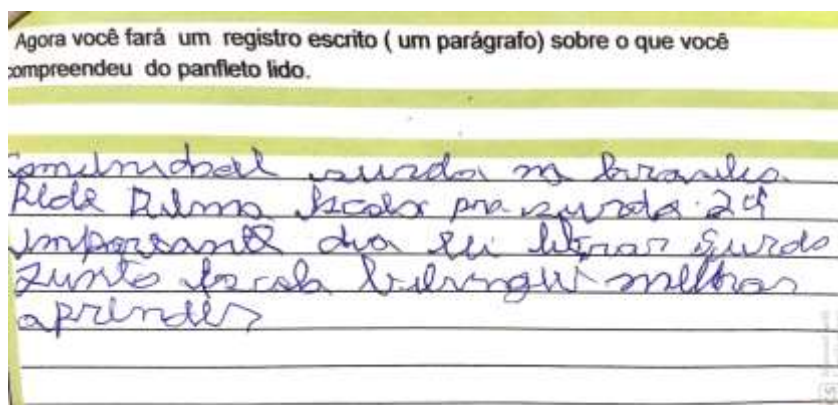 Agora você fará um registro escrito ( um parágrafo) sobre o que você
compreendeu do panfleto lido.
surda na brasileo
Rede Dilma Escola pra surda 24
Importante dia lei Libras Surdo
Junto Escola bilingui melhor
aprender